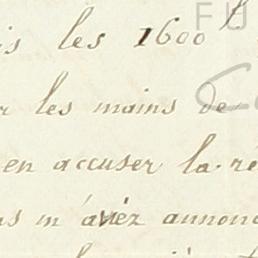 is les 1600
r les mains de
en accuser la ré
s m'aviéz annonc